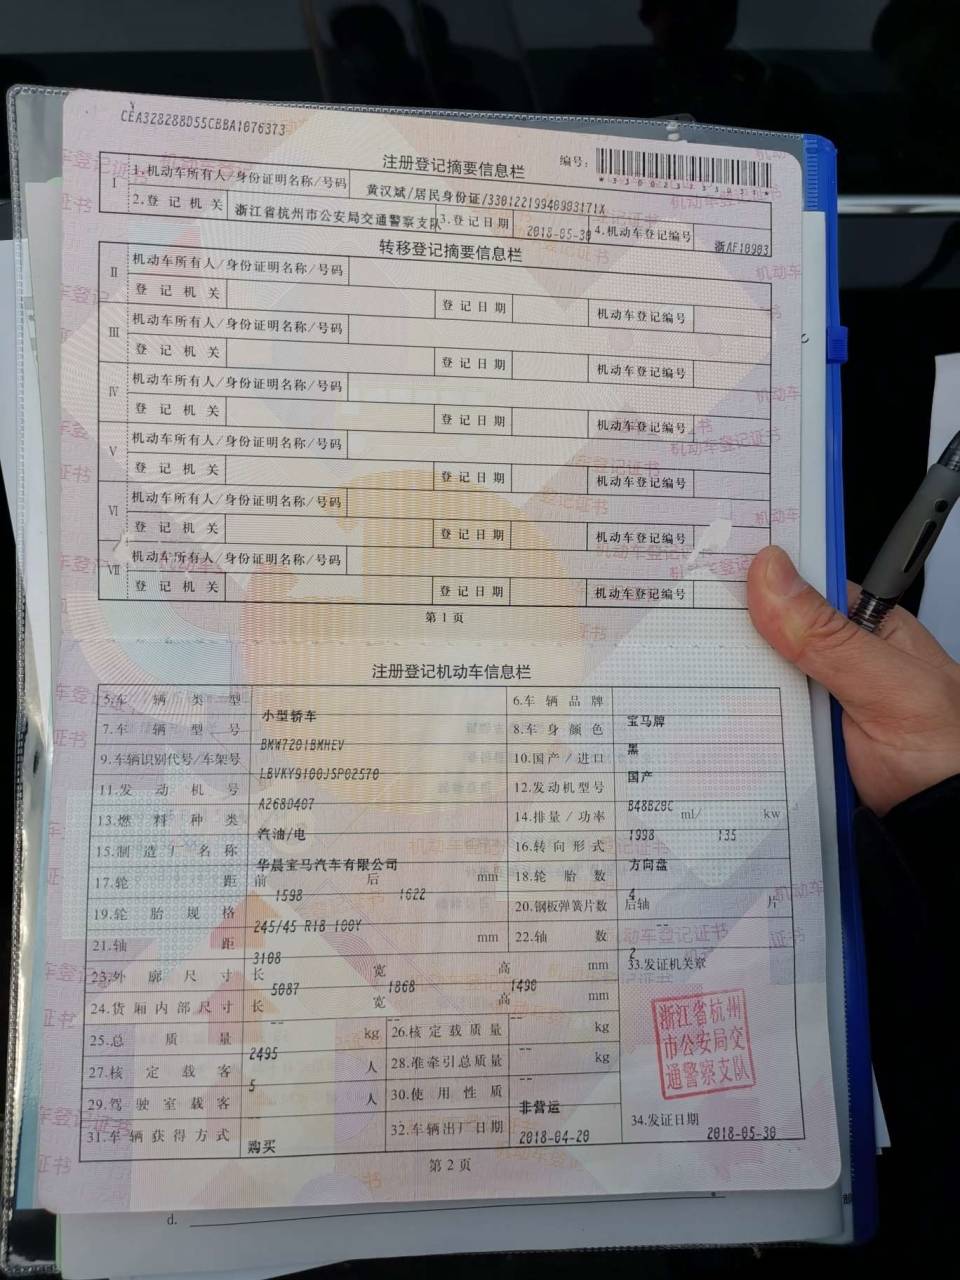 CEA328288D55CBBA1076373
注册登记摘要信息栏
编号:
I
1.机动车所有人/身份证明名称/号码 黄汉斌/居民身份证/33012219940903171X
2.登记机关 浙江省杭州市公安局交通警察支队 3.登记日期 2018-05-30 4.机动车登记编号 浙AF10903
转移登记摘要信息栏
II 机动车所有人/身份证明名称/号码
登记机关 登记日期 机动车登记编号
III 机动车所有人/身份证明名称/号码
登记机关 登记日期 机动车登记编号
IV 机动车所有人/身份证明名称/号码
登记机关 登记日期 机动车登记编号
V 机动车所有人/身份证明名称/号码
登记机关 登记日期 机动车登记编号
VI 机动车所有人/身份证明名称/号码
登记机关 登记日期 机动车登记编号
VII 机动车所有人/身份证明名称/号码
登记机关 登记日期 机动车登记编号
第1页
注册登记机动车信息栏
5.车辆类型 小型轿车 6.车辆品牌 宝马牌
7.车辆型号 BMW7201BMHEV 8.车身颜色 黑
9.车辆识别代号/车架号 LBVKY9100JSP02570 10.国产/进口 国产
11.发动机号 A268D407 12.发动机型号 B48B20C
13.燃料种类 汽油/电 14.排量/功率 1998 ml/ 135 kw
15.制造厂名称 华晨宝马汽车有限公司 16.转向形式 方向盘
17.轮距 前 1598 后 1622 mm 18.轮胎数 4
19.轮胎规格 245/45 R18 100Y 20.钢板弹簧片数 后轴 -- 片
21.轴距 3108 mm 22.轴数 2
23.外廓尺寸 长 5087 宽 1868 高 1490 mm 33.发证机关章
24.货厢内部尺寸 长 -- 宽 -- 高 -- mm
25.总质量 2495 kg 26.核定载质量 -- kg
27.核定载客 5 人 28.准牵引总质量 -- kg
29.驾驶室载客 人 30.使用性质 非营运
31.车辆获得方式 购买 32.车辆出厂日期 2018-04-20
浙江省杭州
市公安局交
通警察支队
34.发证日期 2018-05-30
第2页
d.